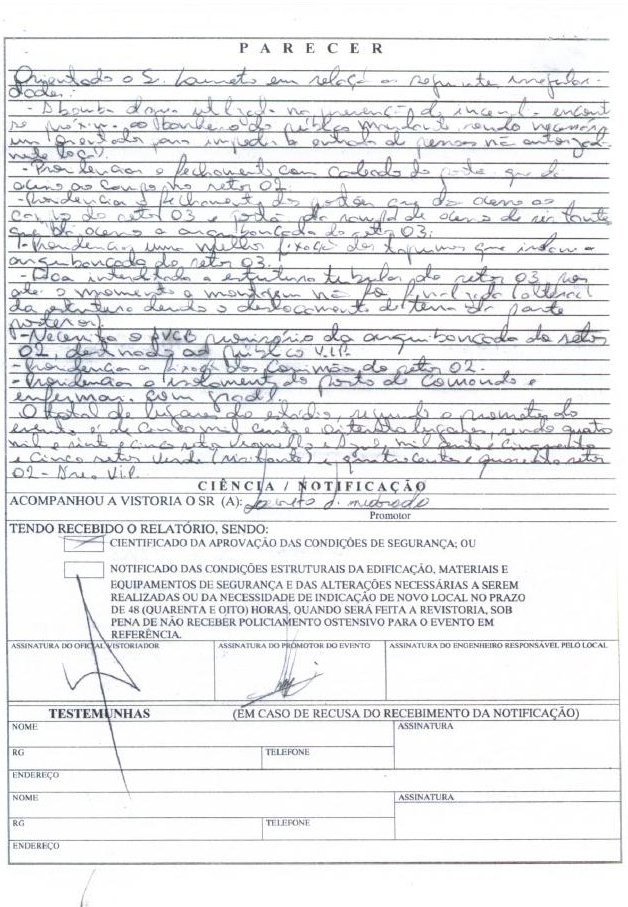 PARECER
Orientado o Sr. em relação as seguintes irregulari-
dades:
- A bomba utilizada na prevenção de incend. encont
se próxim. ao banheiro do público sendo necessário
um orientador para impedir a entrada de pessoas não autoriza-
- Providenciar o fechamento com cadeado do que dá
acesso ao campo no setor 02.
- Providenciar o fechamento dos portões que dão acesso ao
campo do setor 03 e portão da rampa de acesso de visitante
que dá acesso a arquibancada do setor 03.
- Providenciar uma melhor fixação dos tapumes que isolam a
arquibancada do setor 03.
- Fica interditada a estrutura tubular do setor 03, pois
até o momento a montagem não foi finalizada (
da estrutura devido o deslocamento de terra da parte
posterior).
- Necessita o AVCB provisório da arquibancada do setor
02, destinado ao público V.I.P.
- Providenciar a do setor 02.
- Providenciar o isolamento do posto de Comando e
enfermar. com gradil.
O total de lugares do estádio, segundo o promotor do
evento é de cinco mil cento e oitenta lugares, sendo quatro
mil e vinte e cinco setor Vermelho e mil cento e cinquenta
e cinco setor Verde (visitante) e quatrocentos e quarenta setor
02 - V.I.P.
CIÊNCIA / NOTIFICAÇÃO
ACOMPANHOU A VISTORIA O SR (A):
Promotor
TENDO RECEBIDO O RELATÓRIO, SENDO:
CIENTIFICADO DA APROVAÇÃO DAS CONDIÇÕES DE SEGURANÇA; OU
NOTIFICADO DAS CONDIÇÕES ESTRUTURAIS DA EDIFICAÇÃO, MATERIAIS E
EQUIPAMENTOS DE SEGURANÇA E DAS ALTERAÇÕES NECESSÁRIAS A SEREM
REALIZADAS OU DA NECESSIDADE DE INDICAÇÃO DE NOVO LOCAL NO PRAZO
DE 48 (QUARENTA E OITO) HORAS, QUANDO SERÁ FEITA A REVISTORIA, SOB
PENA DE NÃO RECEBER POLICIAMENTO OSTENSIVO PARA O EVENTO EM
REFERÊNCIA.
ASSINATURA DO OFICIAL VISTORIADOR ASSINATURA DO PROMOTOR DO EVENTO ASSINATURA DO ENGENHEIRO RESPONSÁVEL PELO LOCAL
TESTEMUNHAS (EM CASO DE RECUSA DO RECEBIMENTO DA NOTIFICAÇÃO)
NOME ASSINATURA
RG TELEFONE
ENDEREÇO
NOME ASSINATURA
RG TELEFONE
ENDEREÇO